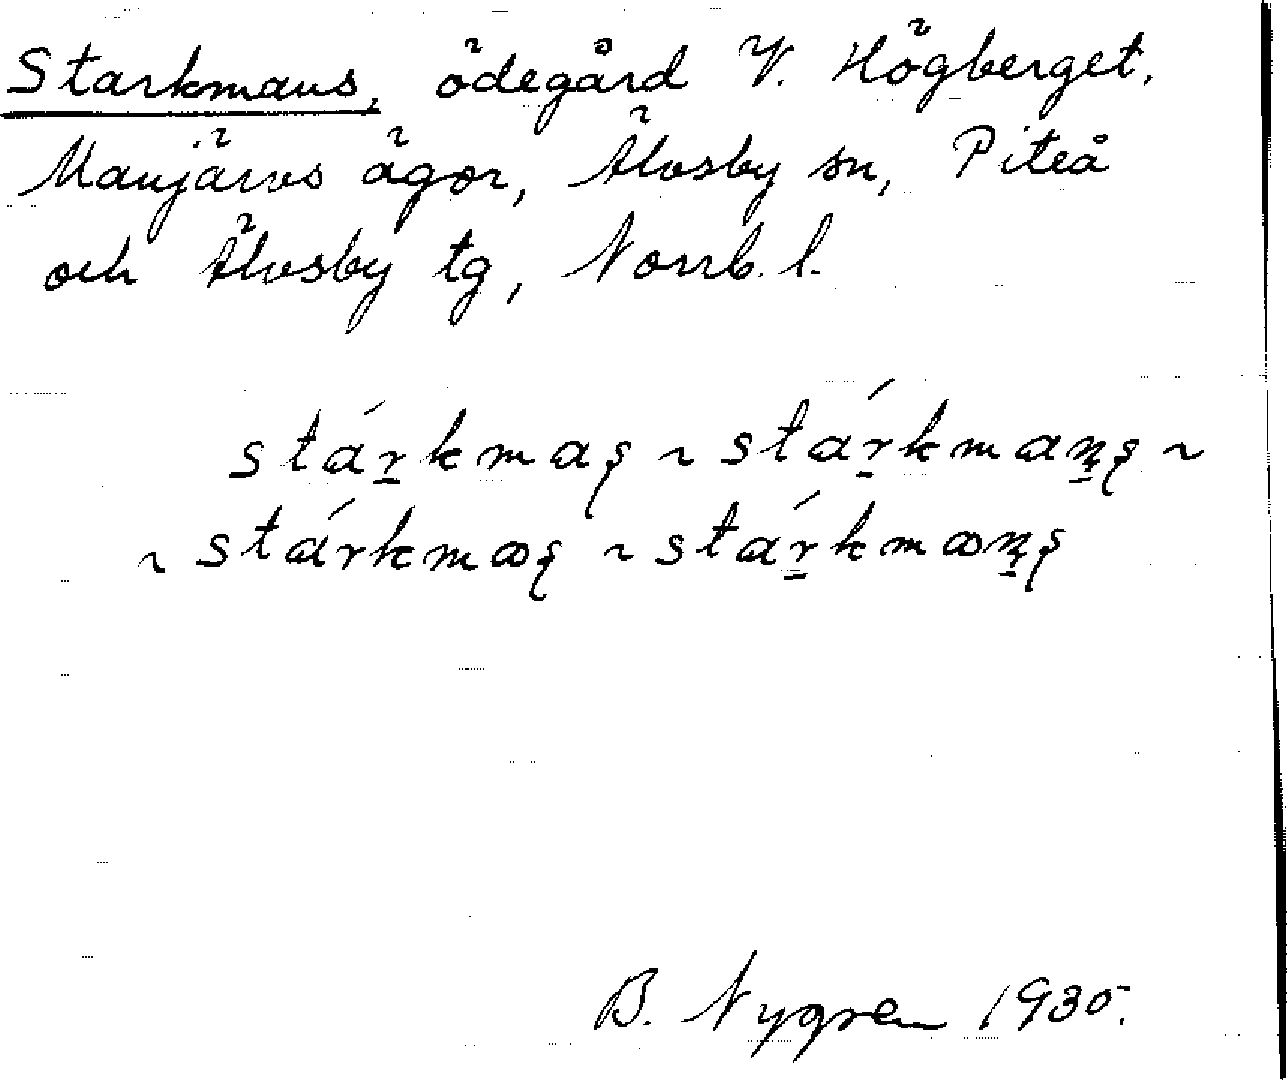 Starkmans, ödegård V. Högberget.
Manjärvs ägor, Älvsby sn, Piteå
och Älvsby tg, Norrb. l.
stár̲kmaş ~ stár̲kman̲̥ş ~
~ stárkmꝏş ~ stár̲kmꝏn̲̥ş
B. Nygren 1935.